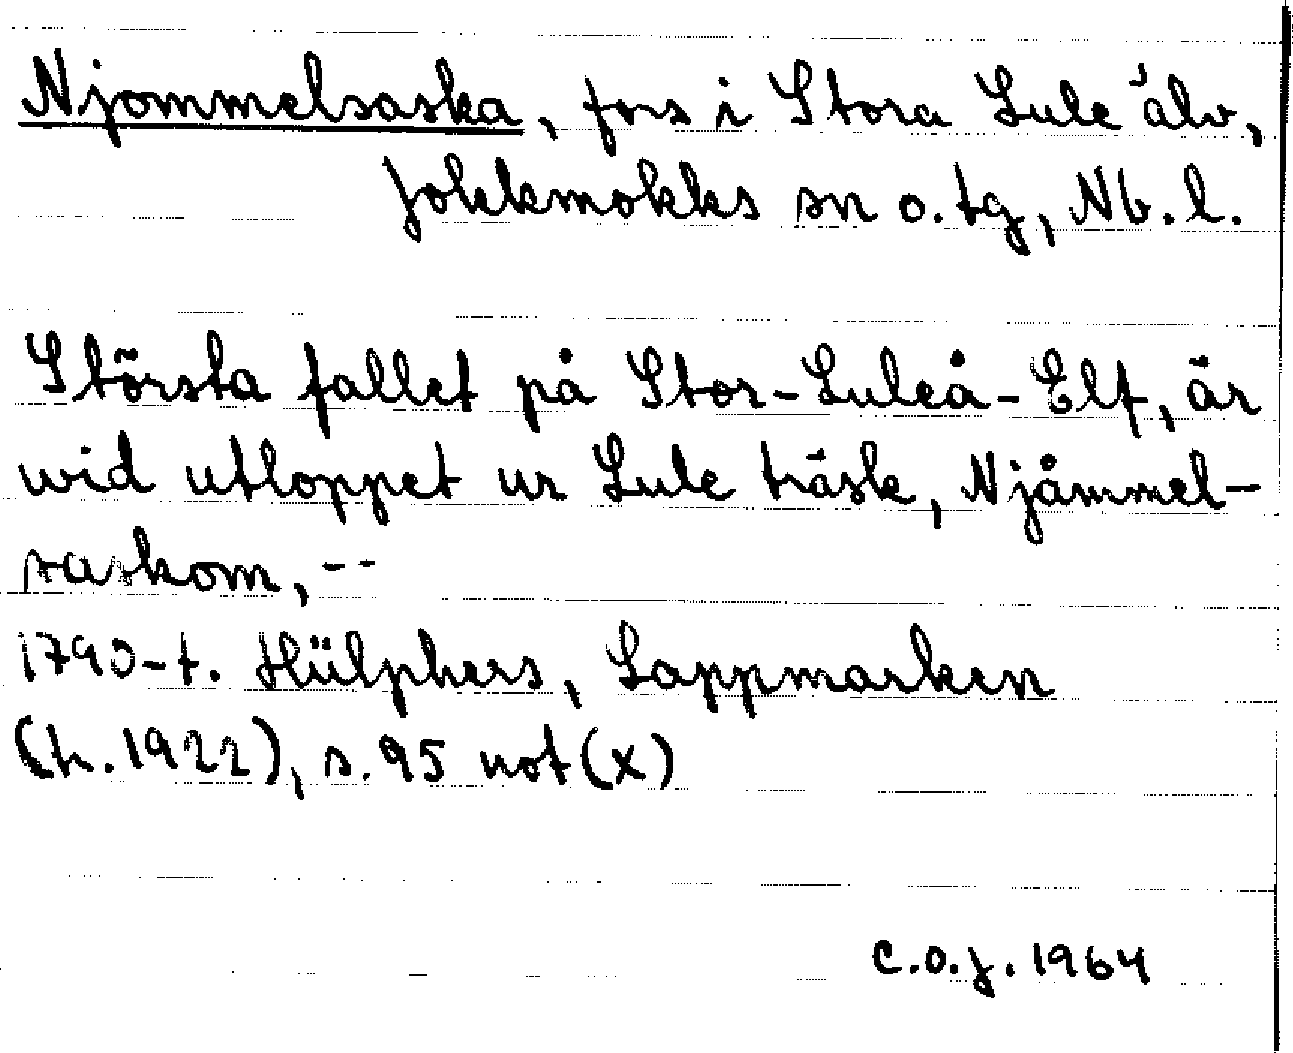 Njommelsaska, fors i Stora Lule älv,
Jokkmokks sn o. tg, Nb. l.
Största fallet på Stor-Luleå-Elf, är
wid utloppet ur Lule träsk, Njåmmel-
saskom, --
1790-t. Hülphers, Lappmarken
(tr. 1922), s. 95 not (x)
C.O.J. 1964